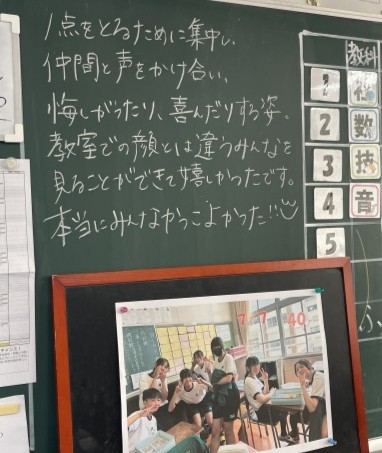 1点をとるために集中し、
仲間と声をかけ合い、
悔しがったり、喜んだりする姿。
教室での顔とは違うみんなを
見ることができて嬉しかったです。
本当にみんなかっこよかった!!
教科
1 社
2 数
3 技
4 音
5
7 7 40